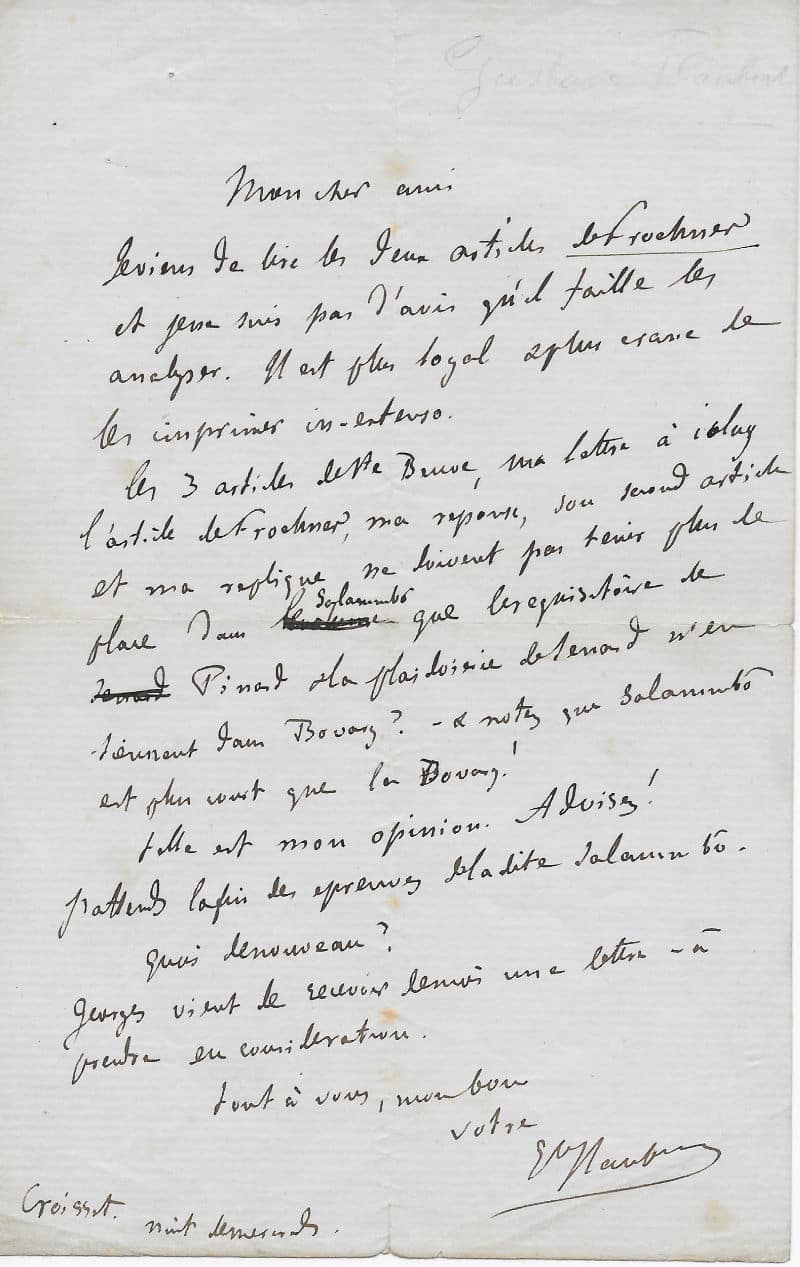 Gustave Flaubert
Mon cher ami
Je viens de lire les deux articles de Froehner
et je ne suis pas d'avis qu'il faille les
analyser. Il est plus loyal & plus crane de
les imprimer in-extenso.
les 3 articles de Ste Beuve, ma lettre à icluy
l'article de Froehner, ma réponse, son second article
et ma replique ne doivent pas tenir plus de
place dans Salammbô que le requisitoire de
Pinard & la plaidoierie de Senard n'en
tiennent dans Bovary? - & notez que Salammbô
est plus court que la Bovary!
telle est mon opinion. Advisez!
J'attends la fin des epreuves de la dite Salammbô.
quoi de nouveau?
Georges vient de recevoir de moi une lettre - à
prendre en consideration.
tout à vous, mon bon
votre
Gve Flaubert
Croisset. nuit de mercredi.